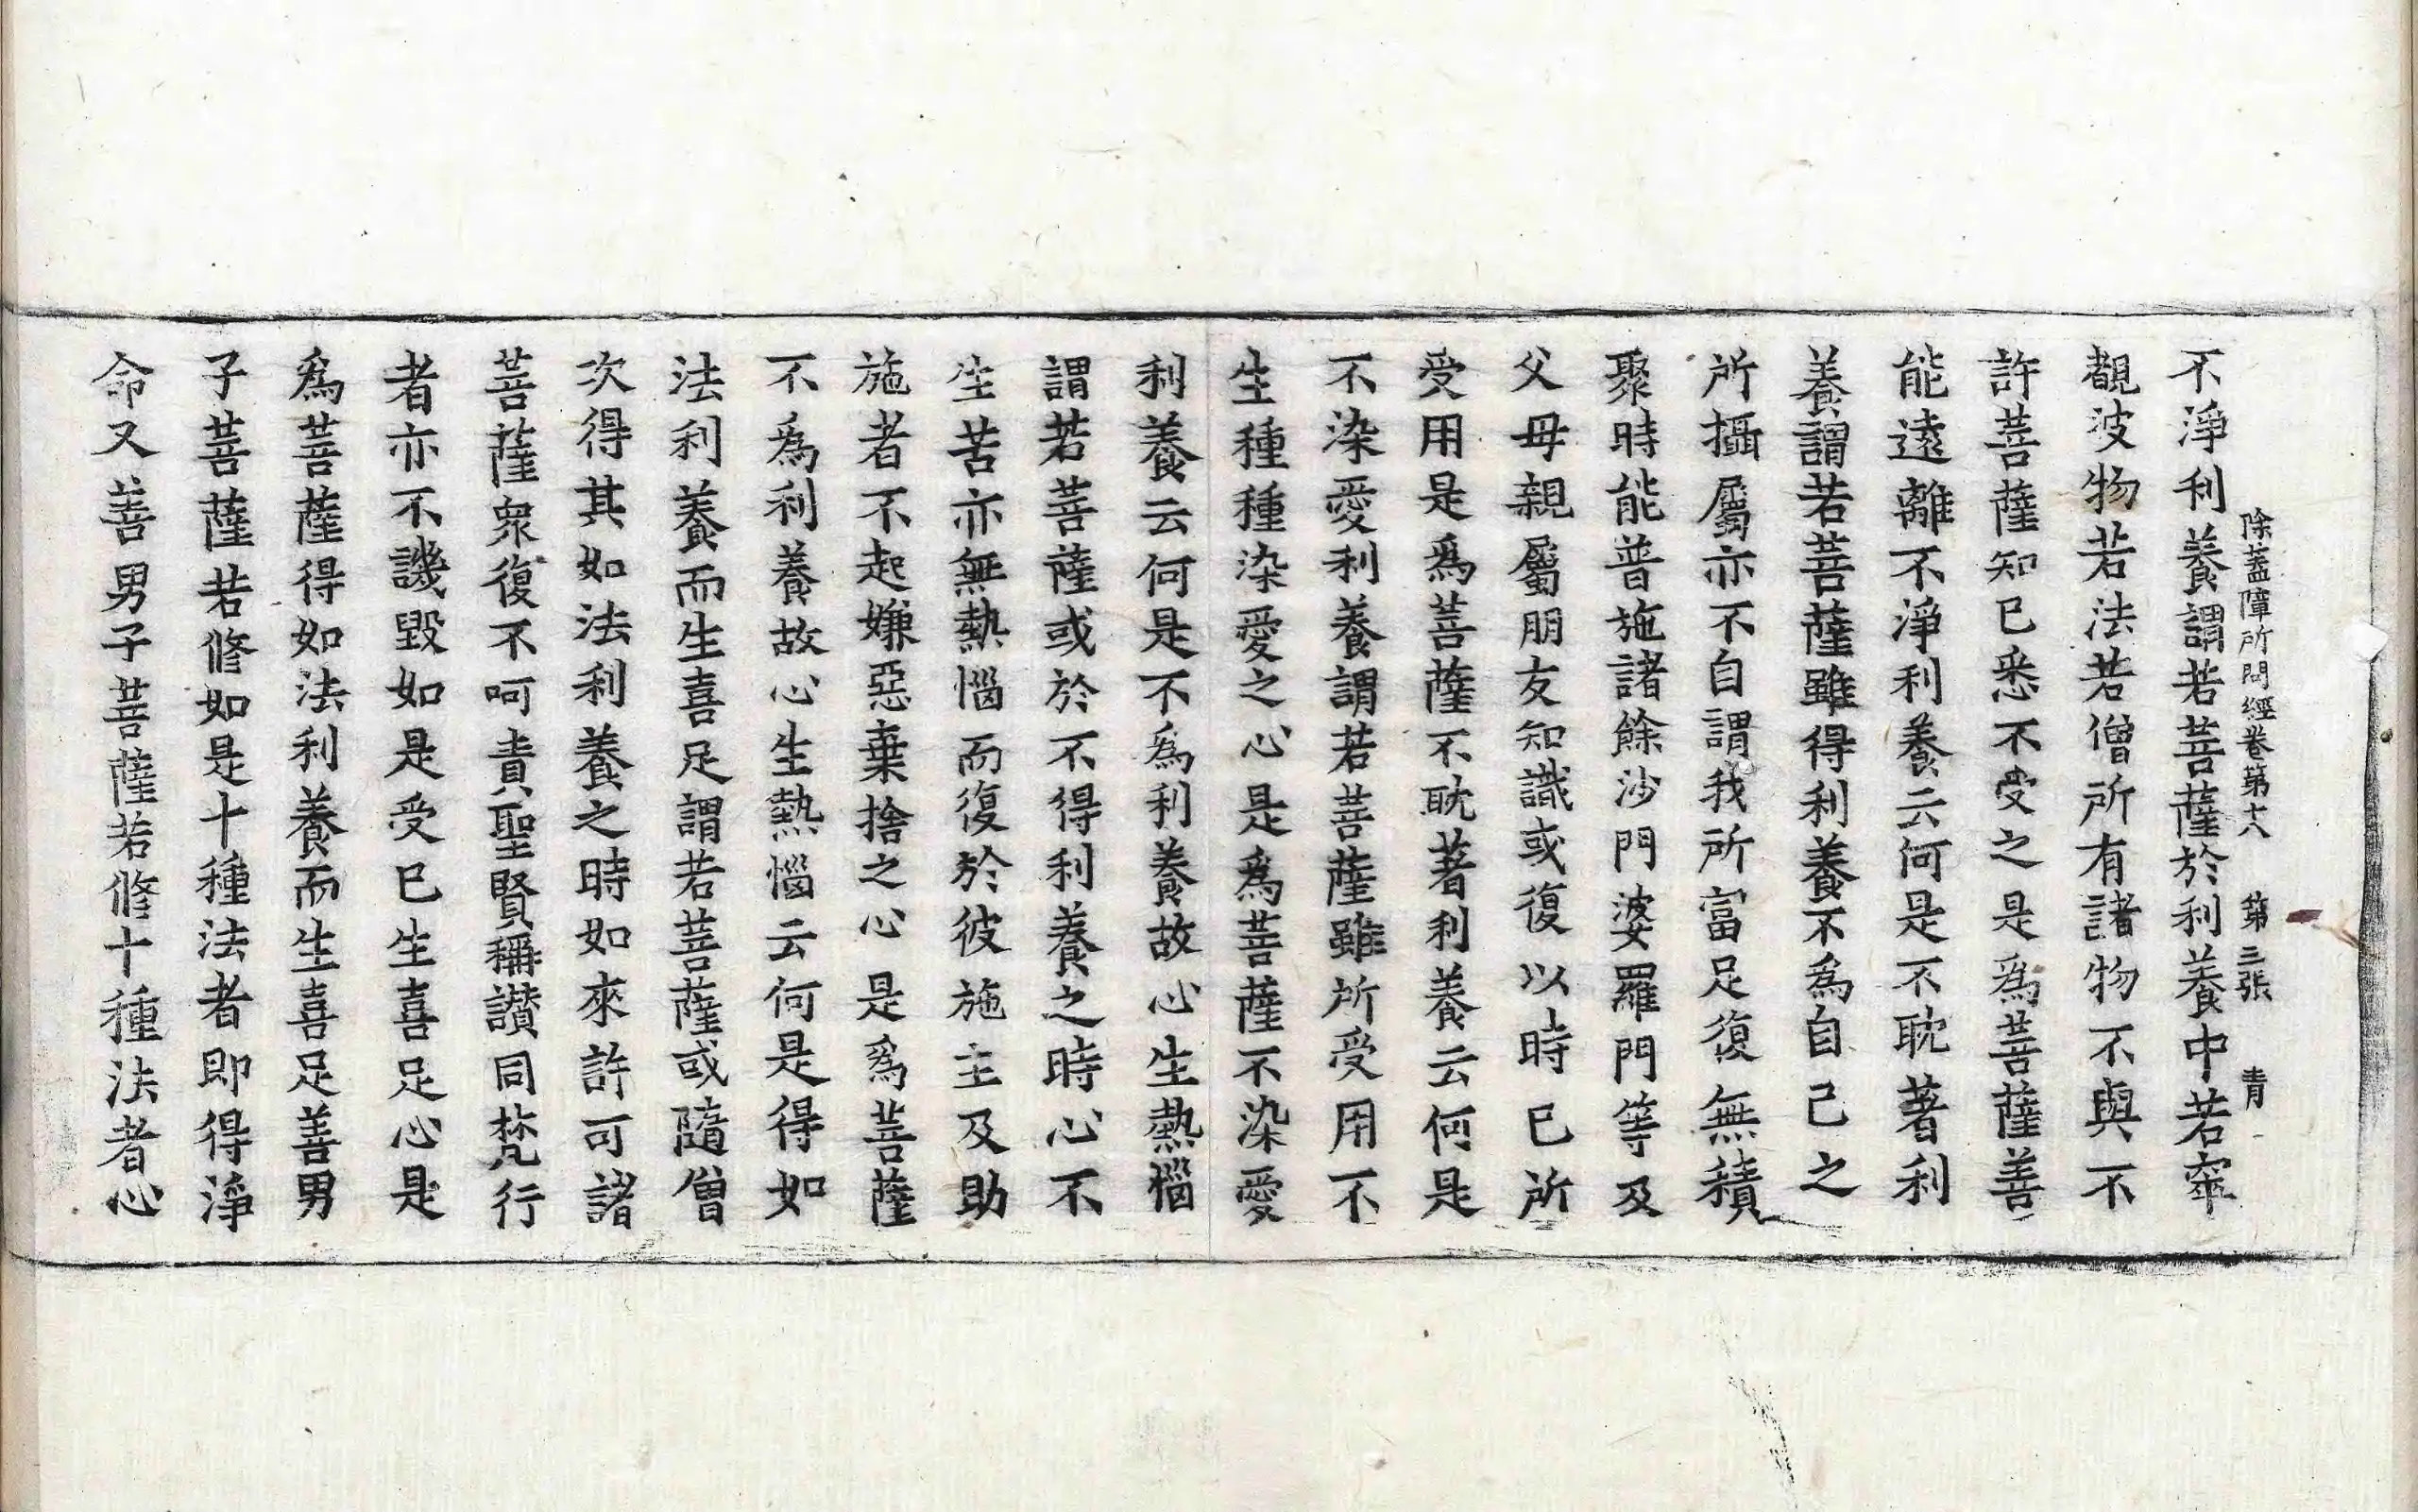 除蓋障所問經卷第十八 第三張 青
不淨利養謂若菩薩於利養中若窣
覩波物若法若僧所有諸物不與不
許菩薩知已悉不受之是爲菩薩善
能遠離不淨利養云何是不耽著利
養謂若菩薩雖得利養不為自己之
所攝屬亦不自謂我所富足復無積
聚時能普施諸餘沙門婆羅門等及
父母親屬朋友知識或復以時已所
受用是爲菩薩不耽著利養云何是
不染愛利養謂若菩薩雖所受用不
生種種染愛之心是爲菩薩不染愛
利養云何是不爲利養故心生熱惱
謂若菩薩或於不得利養之時心不
生苦亦無熱惱而復於彼施主及助
施者不起嫌惡棄捨之心是爲菩薩
不爲利養故心生熱惱云何是得如
法利養而生喜足謂若菩薩或隨僧
次得其如法利養之時如來許可諸
菩薩衆復不呵責聖賢稱讃同梵行
者亦不譏毀如是受已生喜足心是
爲菩薩得如法利養而生喜足善男
子菩薩若修如是十種法者即得淨
命又善男子菩薩若修十種法者心